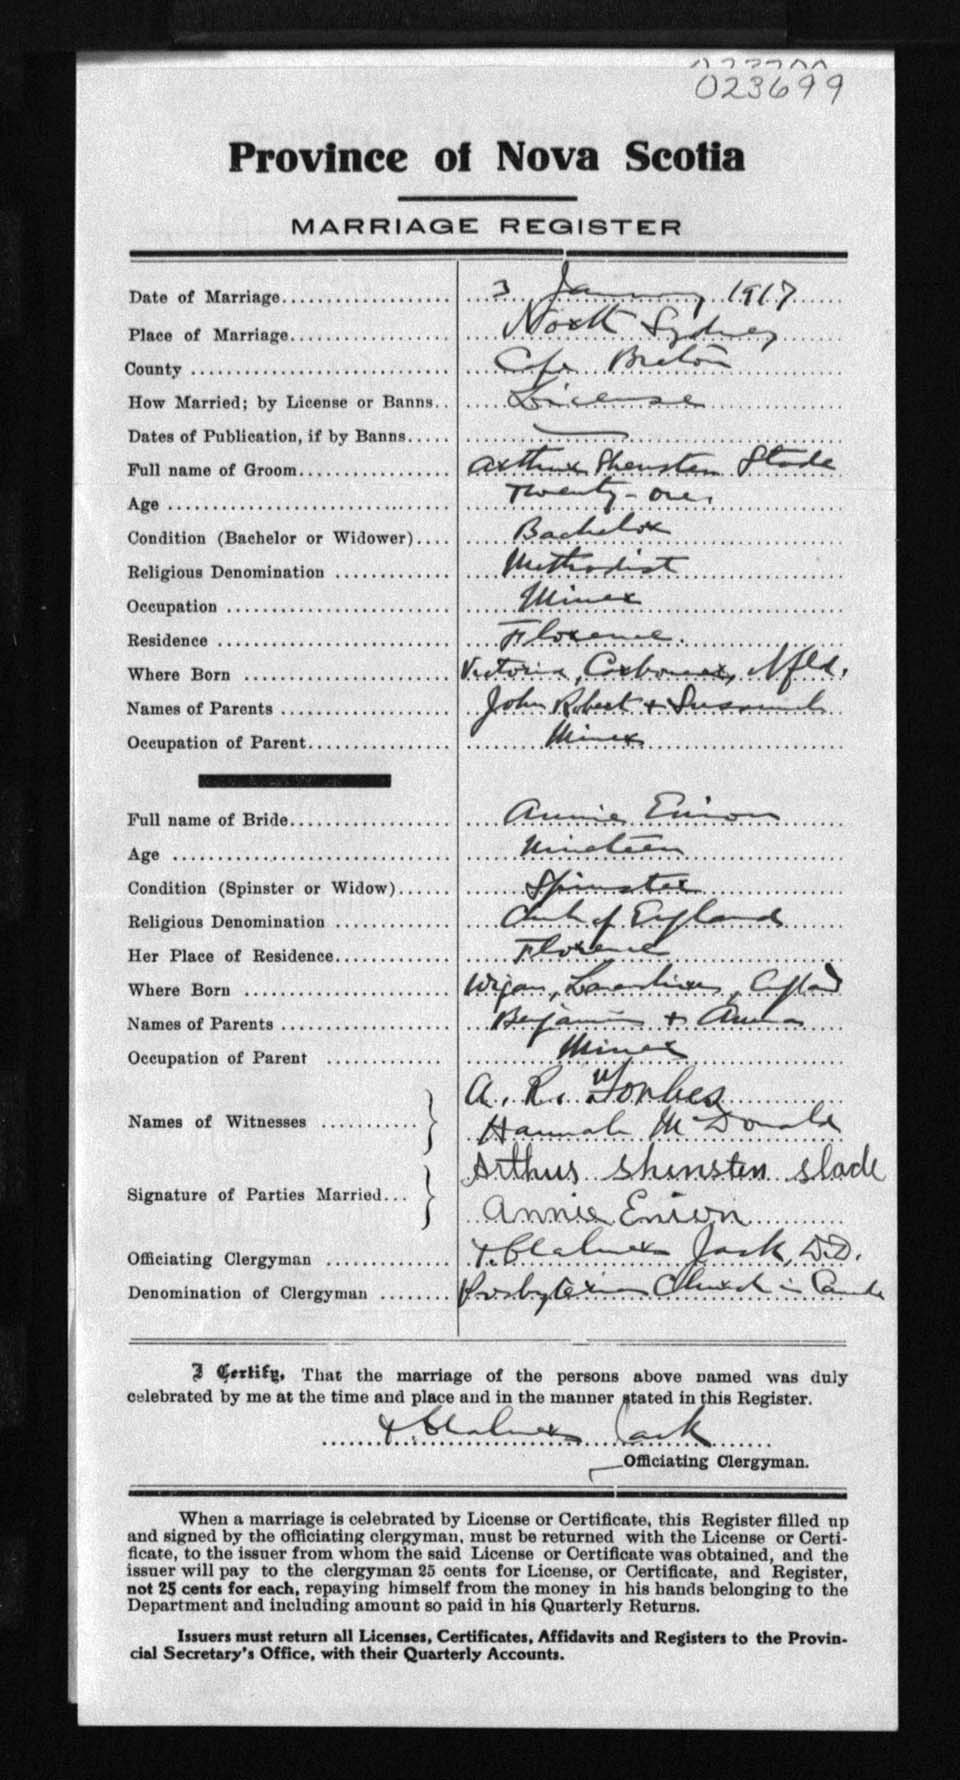 023699
Province of Nova Scotia
MARRIAGE REGISTER
Date of Marriage 3 January 1917
Place of Marriage North Sydney
County Cape Breton
How Married; by License or Banns License
Dates of Publication, if by Banns —
Full name of Groom Arthur Shensten Slade
Age Twenty-one
Condition (Bachelor or Widower) Bachelor
Religious Denomination Methodist
Occupation Miner
Residence Florence.
Where Born Victoria, Carbonear, Nfld.
Names of Parents John Robert + Sussannah
Occupation of Parent Miner
Full name of Bride Annie Enion
Age Nineteen
Condition (Spinster or Widow) Spinster
Religious Denomination Church of England
Her Place of Residence Florence
Where Born Wigan, Lancashire, England
Names of Parents Benjamin + Anna
Occupation of Parent Miner
Names of Witnesses A. R. Forbes
Hannah McDonald
Signature of Parties Married Arthur Shensten Slade
Annie Enion
Officiating Clergyman T. Chalmers Jack, D.D.
Denomination of Clergyman Presbyterian Church in Canada
I Certify, That the marriage of the persons above named was duly
celebrated by me at the time and place and in the manner stated in this Register.
T. Chalmers Jack
Officiating Clergyman.
When a marriage is celebrated by License or Certificate, this Register filled up
and signed by the officiating clergyman, must be returned with the License or Certi-
ficate, to the issuer from whom the said License or Certificate was obtained, and the
issuer will pay to the clergyman 25 cents for License, or Certificate, and Register,
not 25 cents for each, repaying himself from the money in his hands belonging to the
Department and including amount so paid in his Quarterly Returns.
Issuers must return all Licenses, Certificates, Affidavits and Registers to the Provin-
cial Secretary's Office, with their Quarterly Accounts.